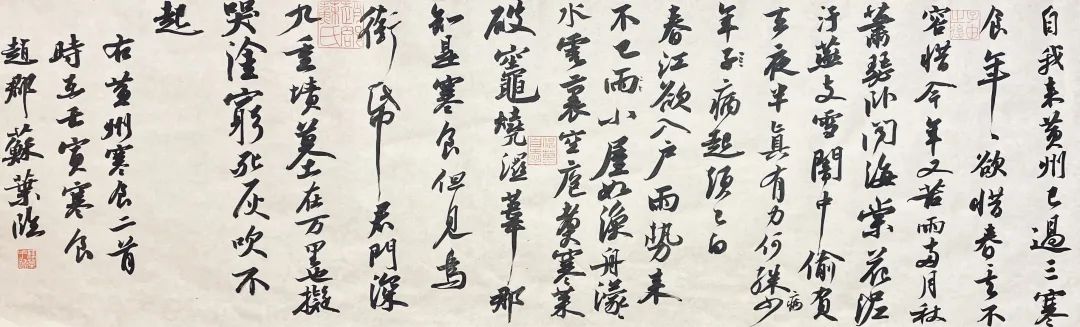 自我来黄州已過三寒
食年、欲惜春去不
容惜今年又苦雨兩月秋
蕭瑟卧聞海棠花泥
汙燕支雪闇中偷負
去夜半真有力何殊少病
年子病起須已白
春江欲入户雨勢来
不已雨小屋如漁舟濛、
水雲裏空庖煮寒菜
破竈燒濕葦那
知是寒食但見烏
銜帋君門深
九重墳墓在万里也擬
哭塗窮死灰吹不
起
右黄州寒食二首
時在壬寅寒食
趙郡蘇葉臨